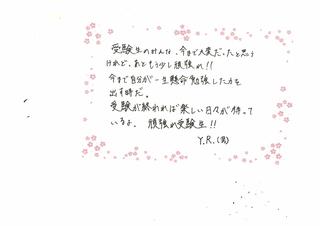 受験生のみんな、今まで大変だったと思う
けれど、あともう少し頑張れ!!
今まで自分が一生懸命勉強した力を
出す時だ。
受験が終われば楽しい日々が待って
いるよ。 頑張れ受験生!!
Y.R.(男)